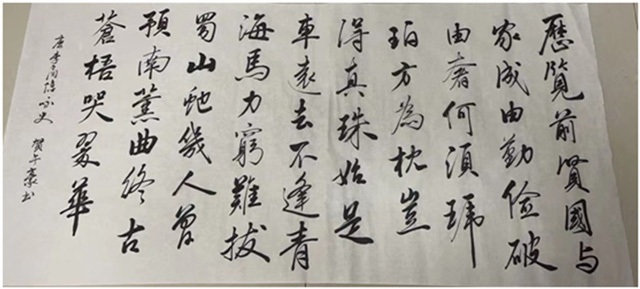 歷覽前賢國与
家成由勤儉破
由奢何須琥
珀方為枕豈
得真珠始是
車遠去不逢青
海馬力窮難拔
蜀山虵幾人曾
預南薰曲終古
蒼梧哭翠華
唐李商隐詠史